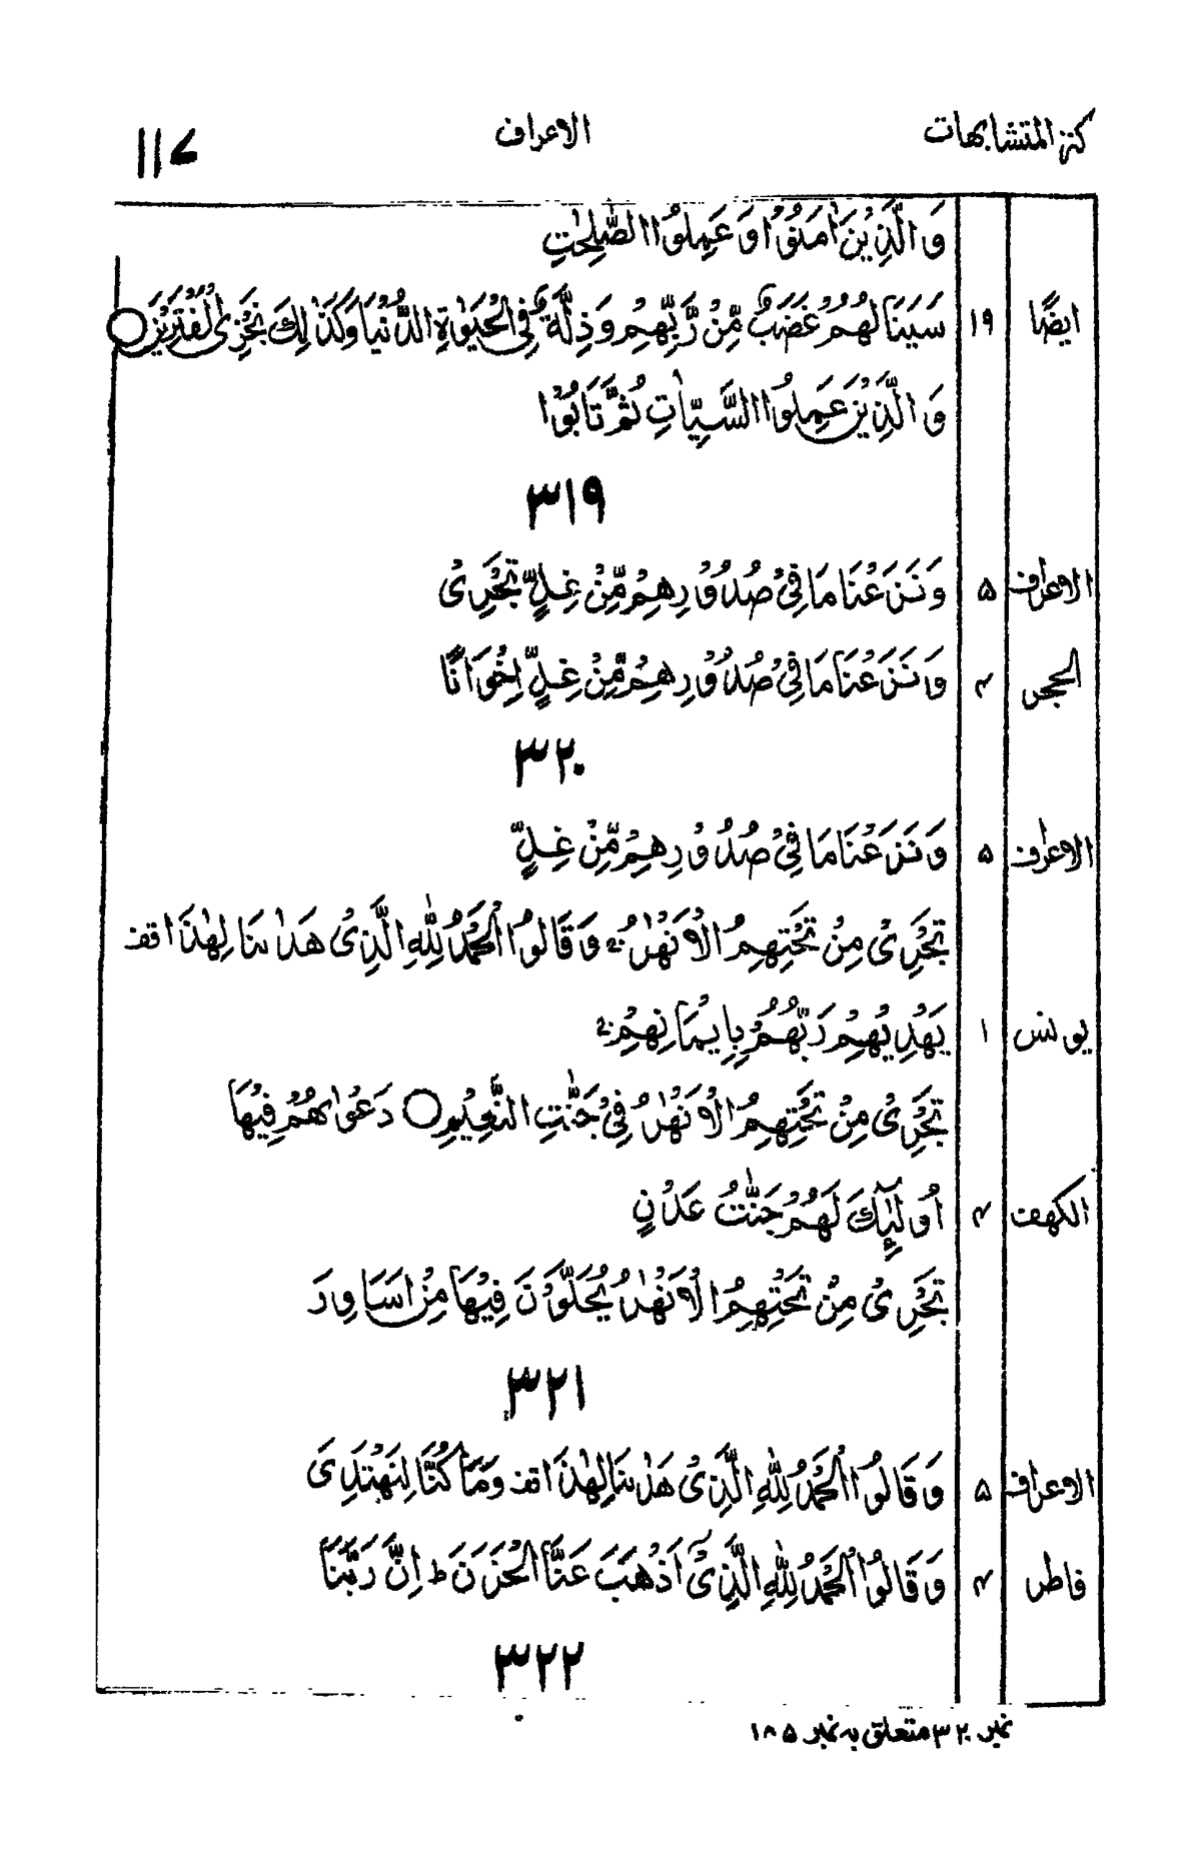 كنز المتشابهات الاعراف ١١٧
وَالَّذِيْنَ اٰمَنُوْا وَعَمِلُوا الصّٰلِحٰتِ
ايضًا ١٩ سَيَنَالُهُمْ غَضَبٌ مِّنْ رَّبِّهِمْ وَذِلَّةٌ فِي الْحَيٰوةِ الدُّنْيَا وَكَذٰلِكَ نَجْزِي الْمُفْتَرِيْنَ ○
وَالَّذِيْنَ عَمِلُوا السَّيِّاٰتِ ثُمَّ تَابُوْا
٣١٩
الاعراف ۵ وَنَزَعْنَا مَا فِيْ صُدُوْرِهِمْ مِّنْ غِلٍّ تَجْرِيْ
الحجر ۴ وَنَزَعْنَا مَا فِيْ صُدُوْرِهِمْ مِّنْ غِلٍّ اِخْوَانًا
٣٢٠
الاعراف ۵ وَنَزَعْنَا مَا فِيْ صُدُوْرِهِمْ مِّنْ غِلٍّ
تَجْرِيْ مِنْ تَحْتِهِمُ الْاَنْهٰرُ ۚ وَقَالُوا الْحَمْدُ لِلّٰهِ الَّذِيْ هَدٰىنَا لِهٰذَا قف
يونس ١ يَهْدِيْهِمْ رَبُّهُمْ بِاِيْمَانِهِمْ ۚ
تَجْرِيْ مِنْ تَحْتِهِمُ الْاَنْهٰرُ فِيْ جَنّٰتِ النَّعِيْمِ ○ دَعْوٰىهُمْ فِيْهَا
الكهف ۴ اُولٰٓئِكَ لَهُمْ جَنّٰتُ عَدْنٍ
تَجْرِيْ مِنْ تَحْتِهِمُ الْاَنْهٰرُ يُحَلَّوْنَ فِيْهَا مِنْ اَسَاوِرَ
٣٢١
الاعراف ۵ وَقَالُوا الْحَمْدُ لِلّٰهِ الَّذِيْ هَدٰىنَا لِهٰذَا قف وَمَا كُنَّا لِنَهْتَدِيَ
فاطر ۴ وَقَالُوا الْحَمْدُ لِلّٰهِ الَّذِيْٓ اَذْهَبَ عَنَّا الْحَزَنَ ؕ اِنَّ رَبَّنَا
٣٢٢
نمبر ٣٢٠ متعلق به نمبر ١٨۵